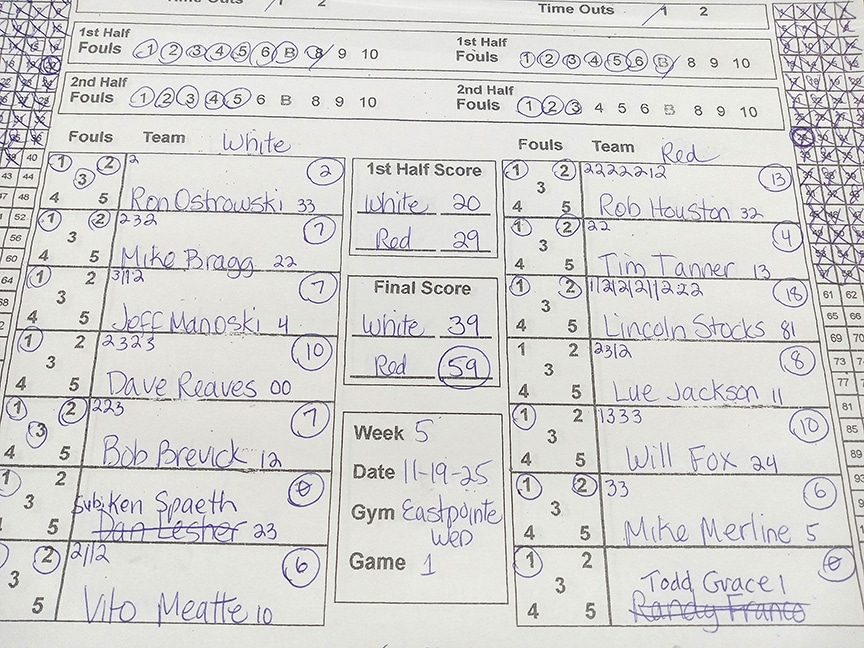 Time Outs 1 2
Time Outs 1 2
1st Half Fouls 1 2 3 4 5 6 B 8 9 10
1st Half Fouls 1 2 3 4 5 6 B 8 9 10
2nd Half Fouls 1 2 3 4 5 6 B 8 9 10
2nd Half Fouls 1 2 3 4 5 6 B 8 9 10
Fouls Team White
1 2 3 4 5
2 2
Ron Ostrowski 33
1 2 3 4 5
232 7
Mike Bragg 22
1 2 3 4 5
3112 7
Jeff Manoski 4
1 2 3 4 5
2323 10
Dave Reaves 00
1 2 3 4 5
223 7
Bob Brevick 12
1 2 3 5
Sub: Ken Spaeth 0
Dan Lesher 23
2 3 5
2112 6
Vito Meatte 10
1st Half Score
White 20
Red 29
Final Score
White 39
Red 59
Week 5
Date 11-19-25
Gym Eastpointe
Wed
Game 1
Fouls Team Red
1 2 3 4 5
2222212 13
Rob Houston 32
1 2 3 4 5
22 4
Tim Tanner 13
1 2 3 4 5
18
Lincoln Stocks 81
1 2 3 4 5
2312 8
Lue Jackson 11
1 2 3 4 5
1333 10
Will Fox 24
1 2 3 4 5
33 6
Mike Merline 5
1 2 3 4 5
Todd Grace 1 0
Randy Franco
40
43 44
47 48
52
56
60
64
68
61 62
65 66
69 70
73
77
81
85
89
93